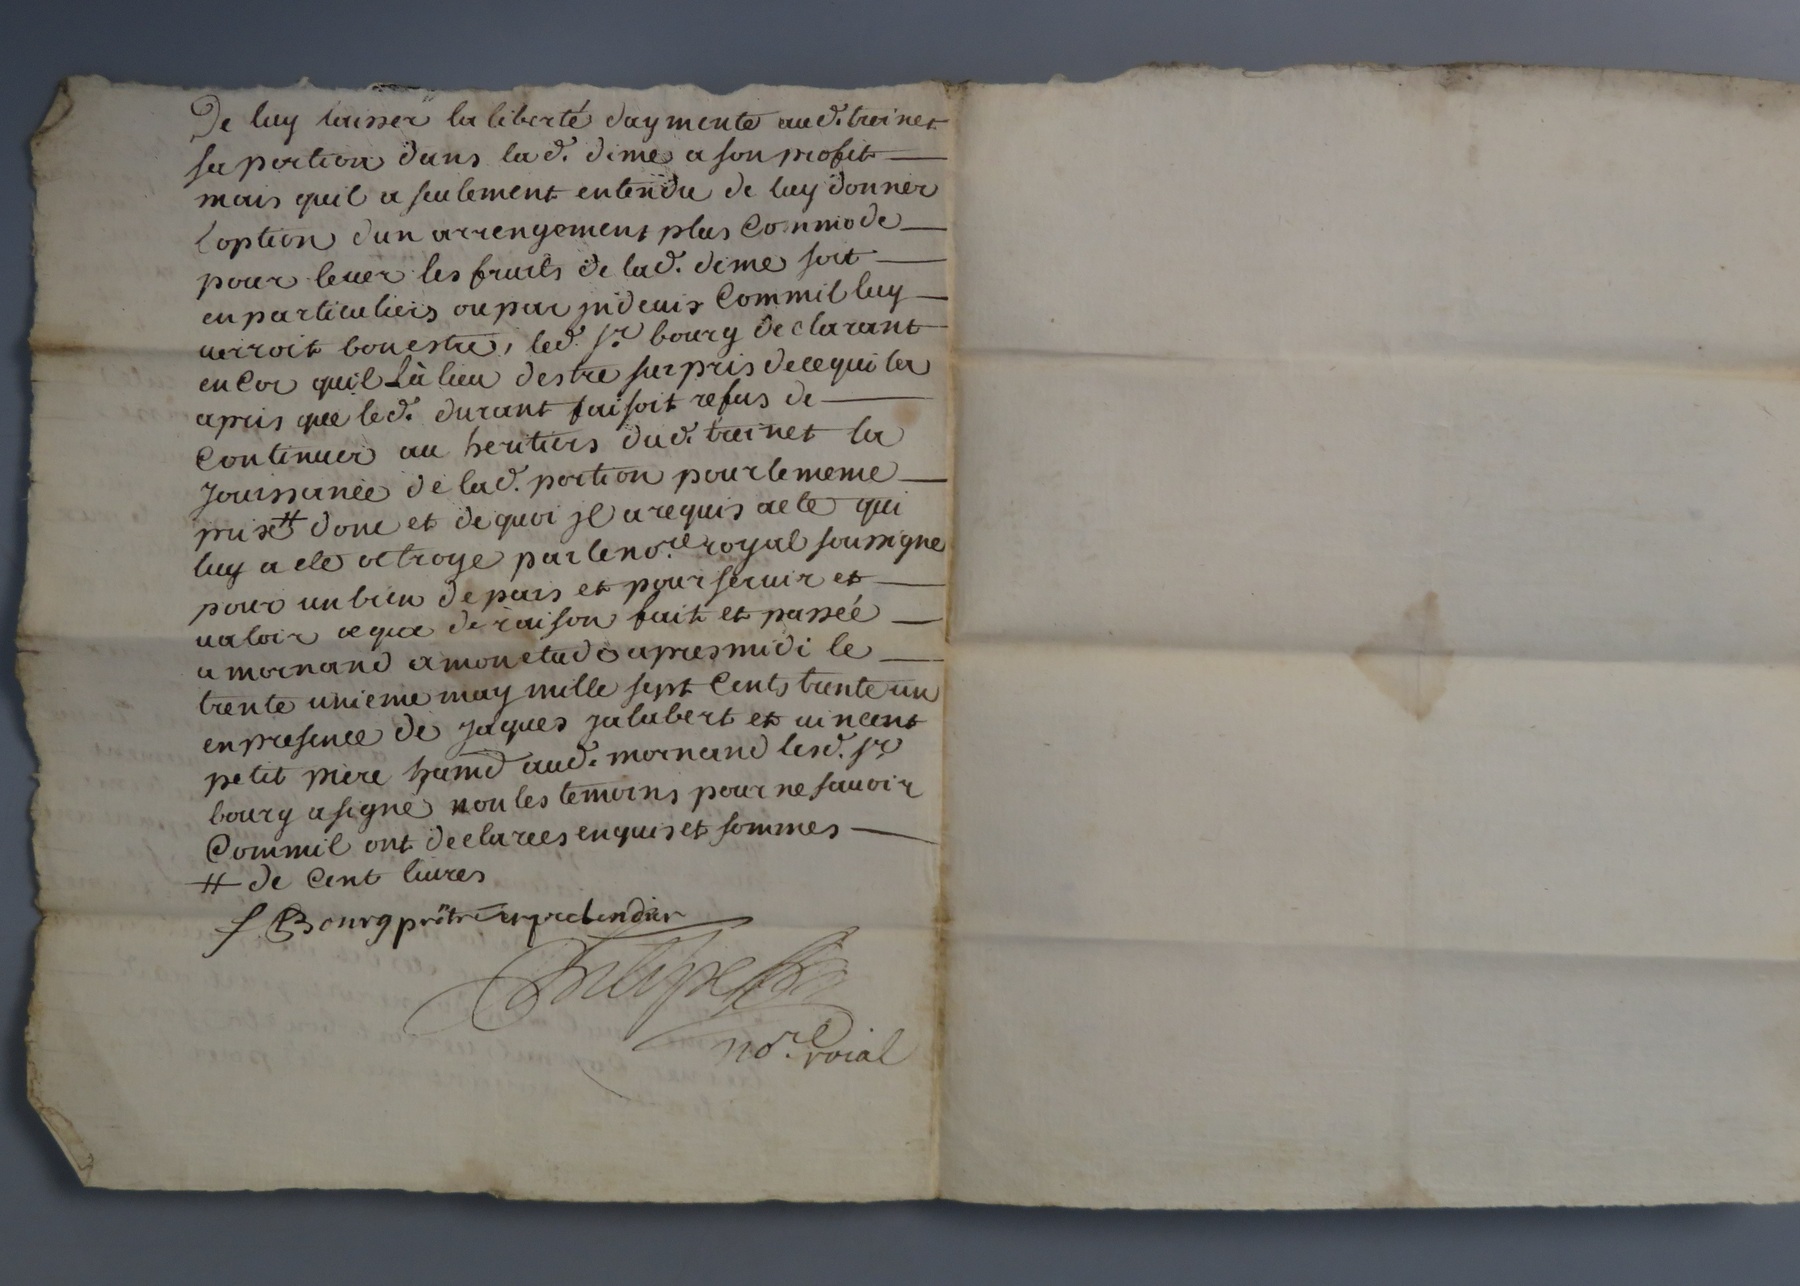 De luy laisser la liberté daymente aud. treinet
sa portion dans lad. dime a son profit
mais quil a seulement entendu de luy donner
loption dun arrengement plus Commode
pour lever les fruits de lad. dime soit
en particuliers ou par jndeuis Commil luy
uerroit bon estre, led. sr. bourg declarant
enCor quil Là lieu destre surpris de ce qui la
apris que led. durant faisoit refus de
Continuer au heritiers dud. treinet la
jouissance de lad. portion pour le meme
prix # donc et de quoi jl a requis acte qui
luy a ete octroye par le nore. royal soussigne
pour un bien de pais et pour seruir et
ualoir ce que de raison fait et passée
a mornand a mon etude apres midi le
trente unieme may mille sept Cents trente un
en presence de jaques jalabert et uincent
petit mere hamd aud. mornand lesd. sr
bourg a signe non les temoins pour ne savoir
Commil ont declarees enquis et sommes
# de Cent liures
f Bourg prêtre et prebendier
nore. roial